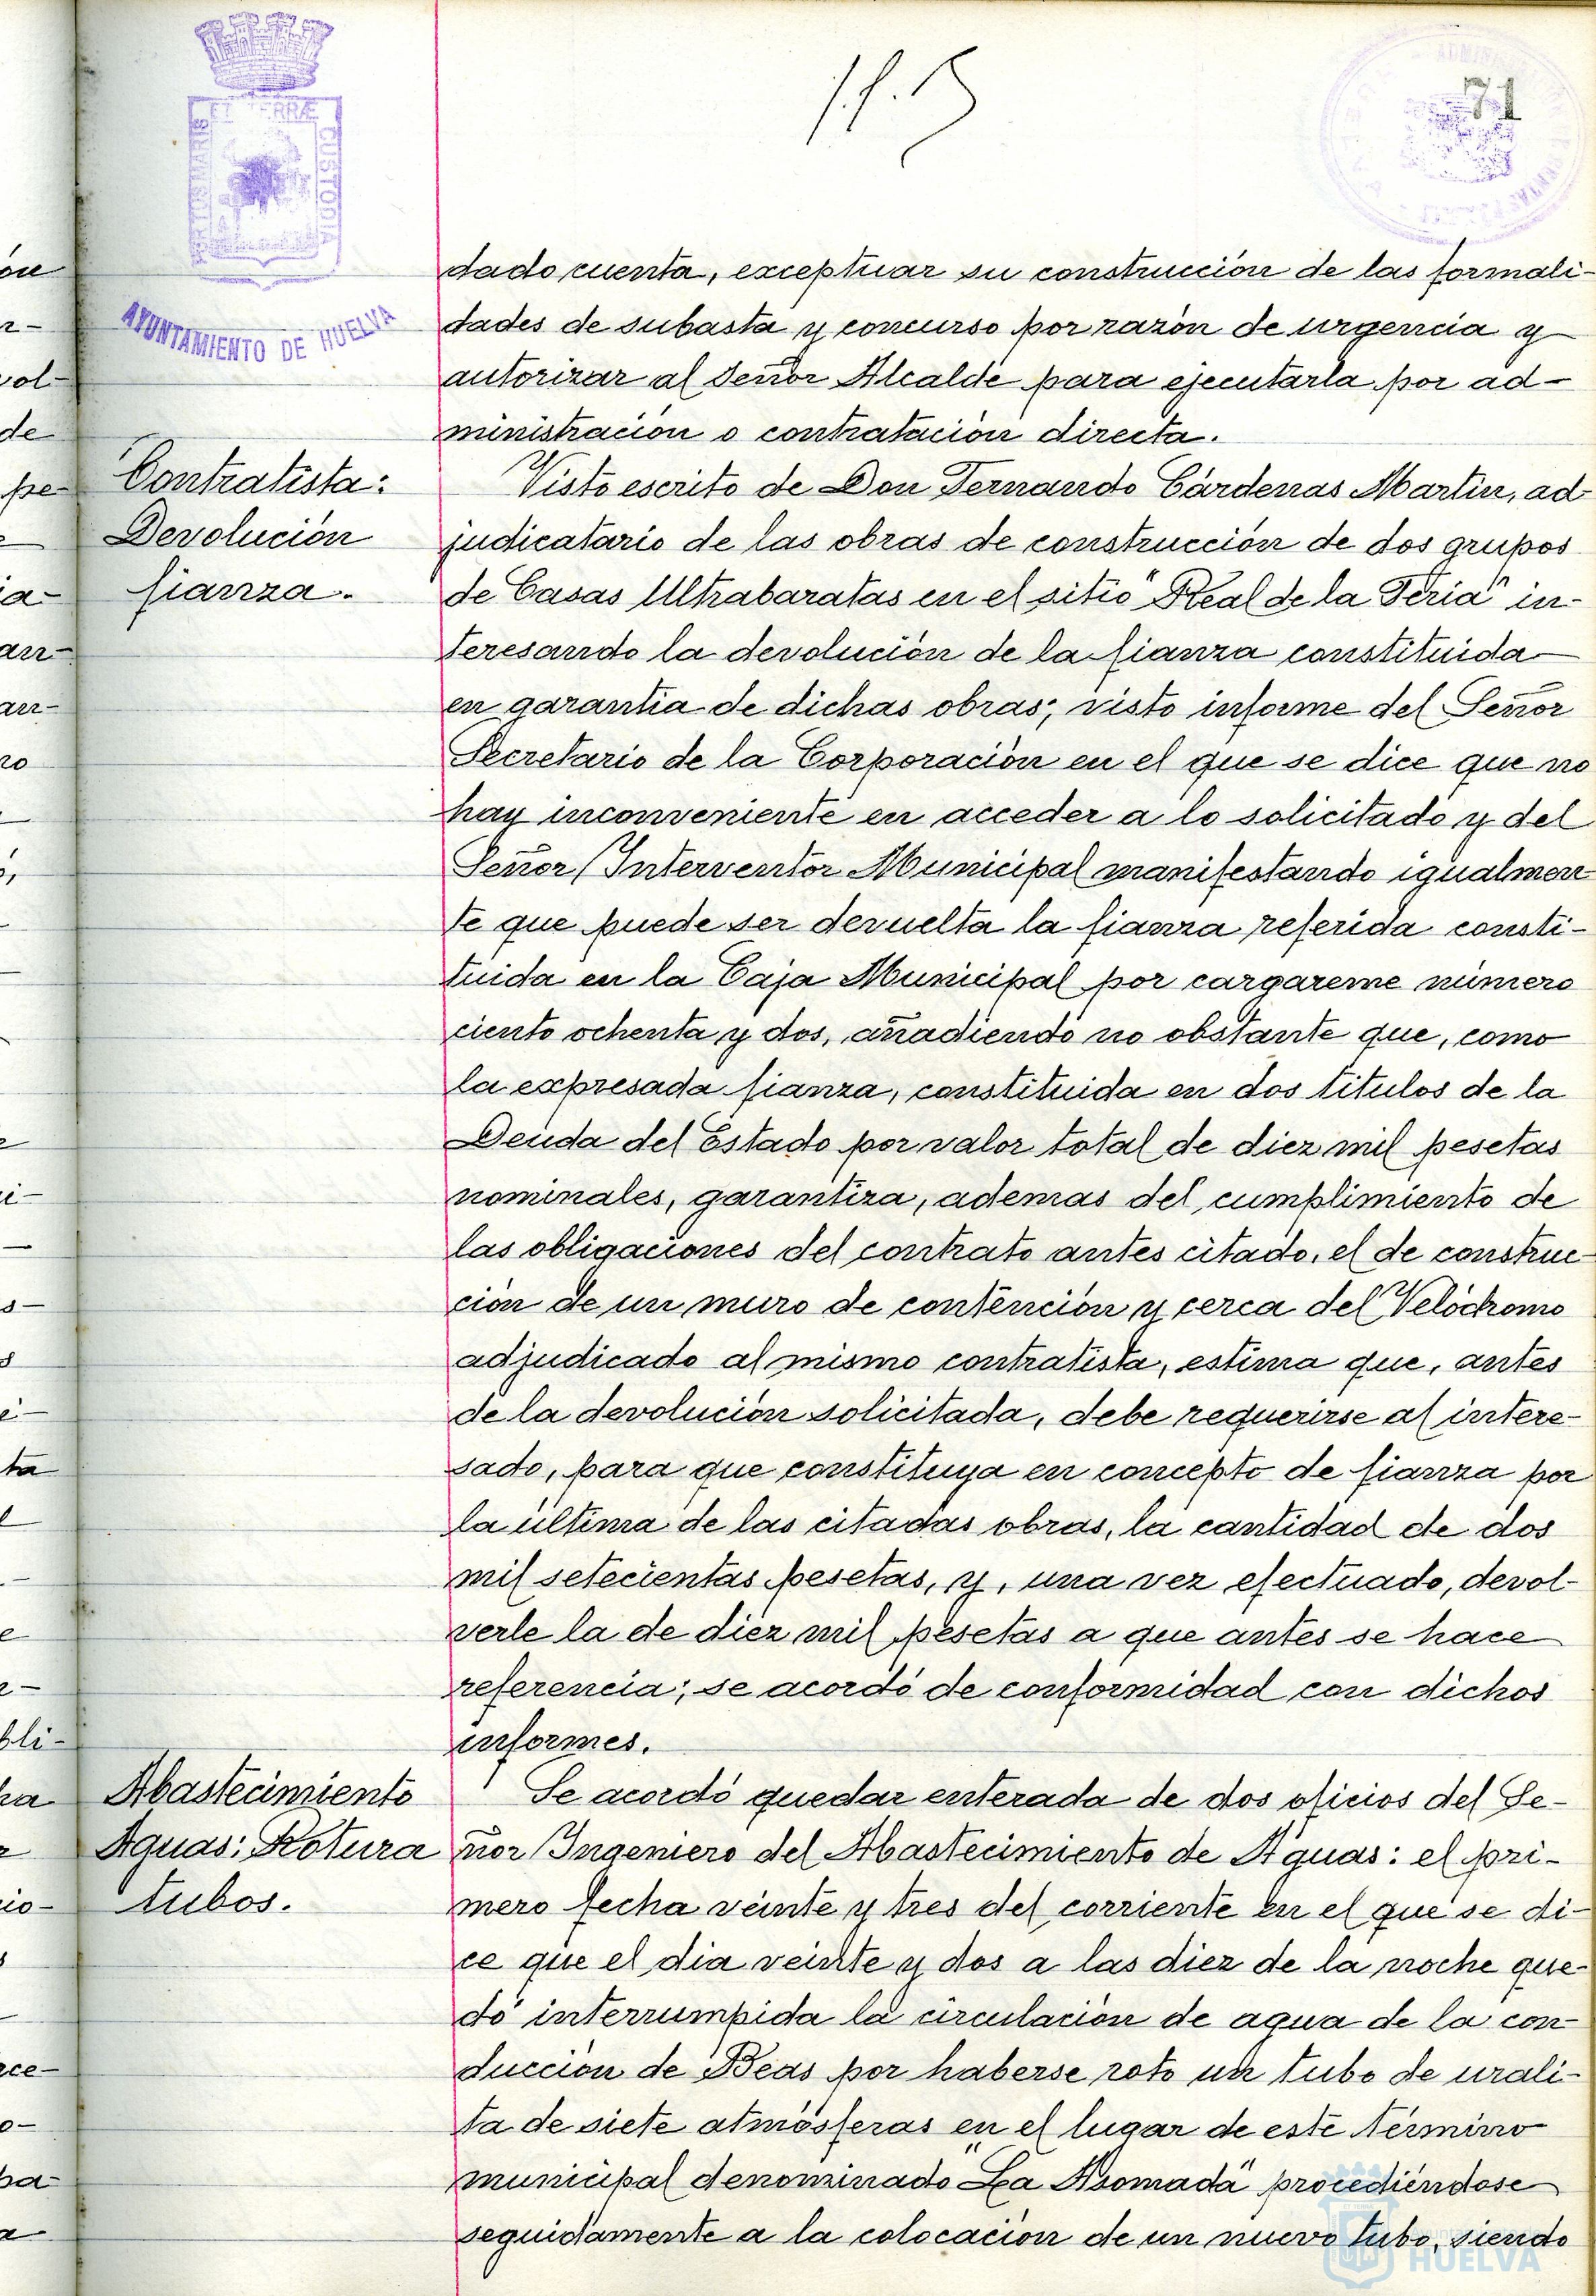 71
PORTUS MARIS ET TERRÆ CUSTODIA
AYUNTAMIENTO DE HUELVA
dado cuenta, exceptuar su construcción de las formali-
dades de subasta y concurso por razón de urgencia y
autorizar al Señor Alcalde para ejecutarla por ad-
ministración o contratación directa.
Contratista:
Devolución
fianza.
Visto escrito de Don Fernando Cárdenas Martin, ad-
judicatario de las obras de construcción de dos grupos
de Casas Ultrabaratas en el sitio "Real de la Feria" in-
teresando la devolución de la fianza constituida
en garantia de dichas obras; visto informe del Señor
Secretario de la Corporación en el que se dice que no
hay inconveniente en acceder a lo solicitado y del
Señor Interventor Municipal manifestando igualmen
te que puede ser devuelta la fianza referida consti-
tuida en la Caja Municipal por cargareme número
ciento ochenta y dos, añadiendo no obstante que, como
la expresada fianza, constituida en dos titulos de la
Deuda del Estado por valor total de diez mil pesetas
nominales, garantiza, ademas del cumplimiento de
las obligaciones del contrato antes citado, el de construc-
ción de un muro de contención y cerca del Velódromo
adjudicado al mismo contratista, estima que, antes
de la devolución solicitada, debe requerirse al intere-
sado, para que constituya en concepto de fianza por
la última de las citadas obras, la cantidad de dos
mil setecientas pesetas, y, una vez efectuado, devol-
verle la de diez mil pesetas a que antes se hace
referencia; se acordó de conformidad con dichos
informes.
Abastecimiento
Aguas: Rotura
tubos.
Se acordó quedar enterada de dos oficios del Se-
ñor Ingeniero del Abastecimiento de Aguas: el pri-
mero fecha veinte y tres del corriente en el que se di-
ce que el dia veinte y dos a las diez de la noche que-
dó interrumpida la circulación de agua de la con-
ducción de Beas por haberse roto un tubo de urali-
ta de siete atmósferas en el lugar de este término
municipal denominado "La Asomada" procediéndose
seguidamente a la colocación de un nuevo tubo, siendo
HUELVA